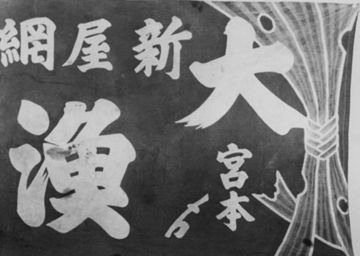 大漁
新屋網
宮本